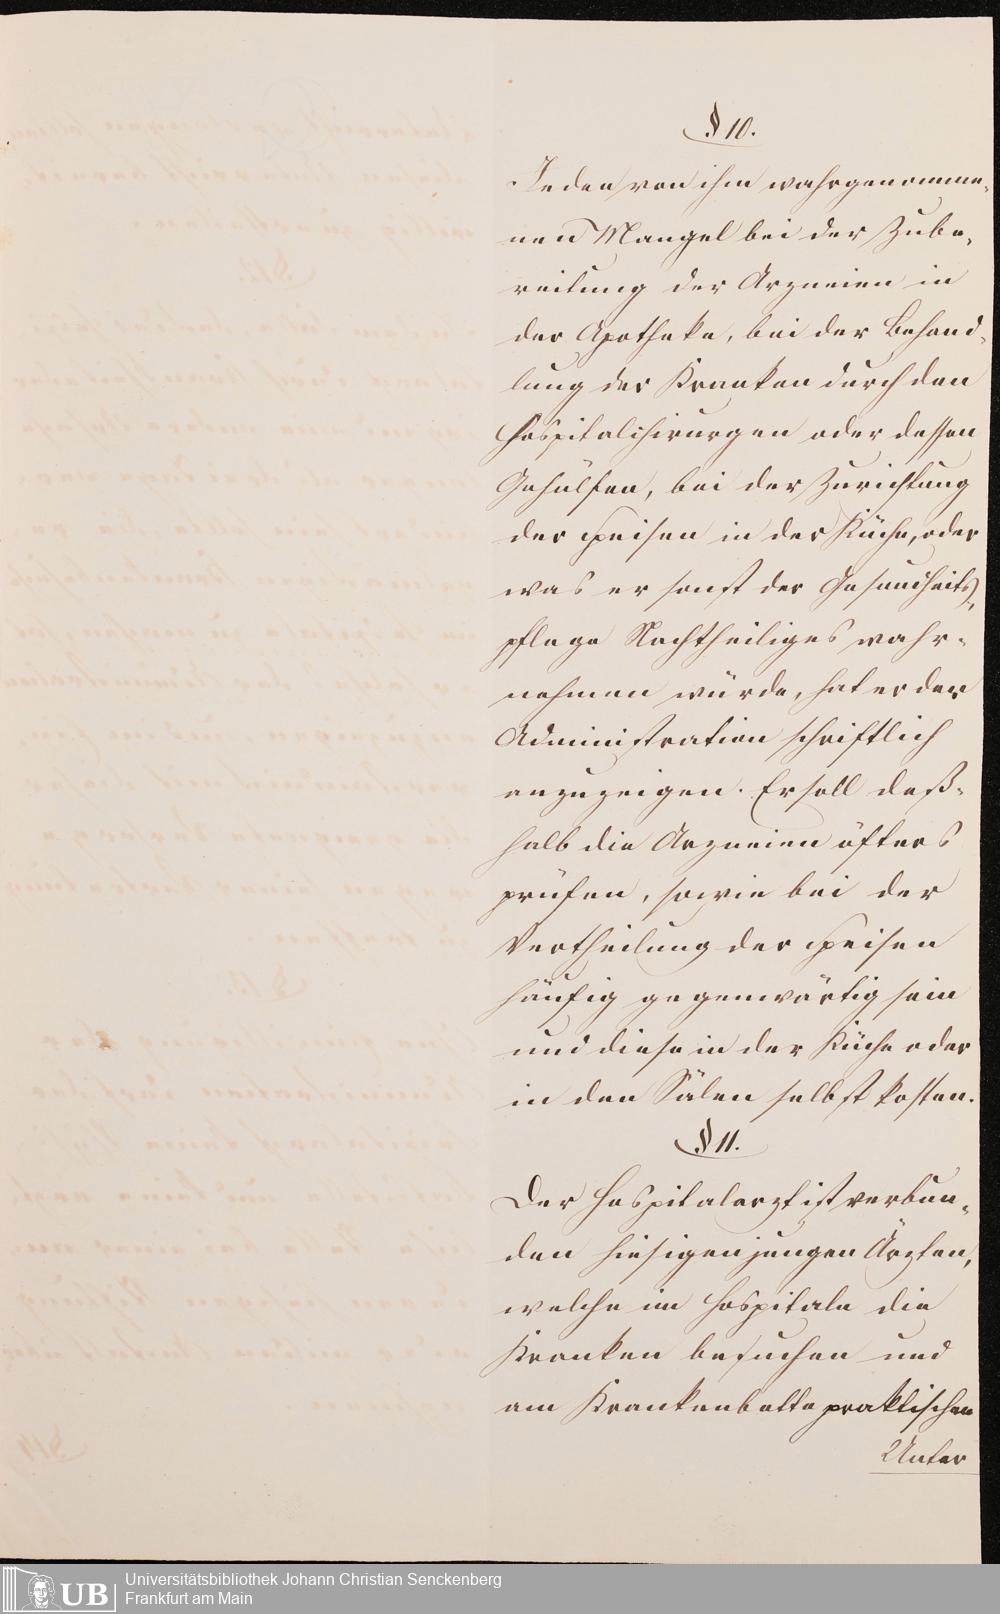 § 10.
Jeden von ihm wahrgenomme-
nen Mangel bei der Zube-
reitung der Arzneien in
der Apotheke, bei der Behand-
lung der Kranken durch den
Hospitalchirurgen oder dessen
Gehülfen, bei der Zurichtung
der Speisen in der Küche, oder
was er sonst der Gesundheits-
pflege Nachtheiliges wahr-
nehmen würde, hat er der
Administration schriftlich
anzuzeigen. Er soll deß-
halb die Arzneien öfters
prüfen, sowie bei der
Vertheilung der Speisen
häufig gegenwärtig sein
und diese in der Küche oder
in den Sälen selbst kosten.
§ 11.
Der Hospitalarzt ist verbun-
den hiesigen jungen Ärzten,
welche im Hospitale die
Kranken besuchen und
am Krankenbette praktischen
Unter
UB
Universitätsbibliothek Johann Christian Senckenberg
Frankfurt am Main